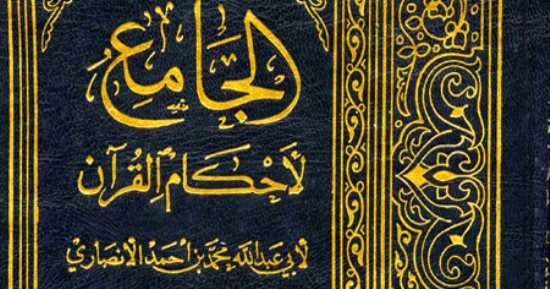 الجامع
لأحكام القرآن
لأبي عبد الله محمد بن أحمد الأنصاري